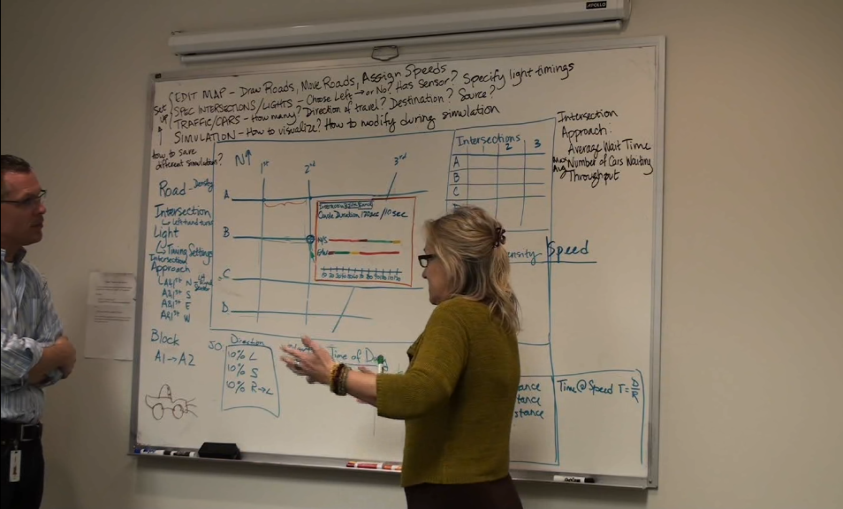 EDIT MAP - Draw Roads, Move Roads, Assign Speeds
SPEC INTERSECTIONS/LIGHTS - Choose Left → or No? Has Sensor? Specify light timings
TRAFFIC/CARS - How many? Direction of travel? Destination? Source?
SIMULATION - How to visualize? How to modify during simulation
SET UP
How to save different simulation?
N↑
1st
2nd
3rd
A
B
C
D
Road - Density
Intersection
Light
Timing Settings
Intersection
Approach
A&1st N
A&1st S
A&1st E
A&1st W
Block
A1→A2
Cycle Duration 120sec /110sec
N/S
E/W
Intersections
2
3
A
B
C
Intersection
Approach:
Average Wait Time
Number of Cars Waiting
Throughput
Speed
Direction
10% L
10% S
10% R→L
Time of Day
ance
tance
stance
Time@Speed T=D/R
APOLLO